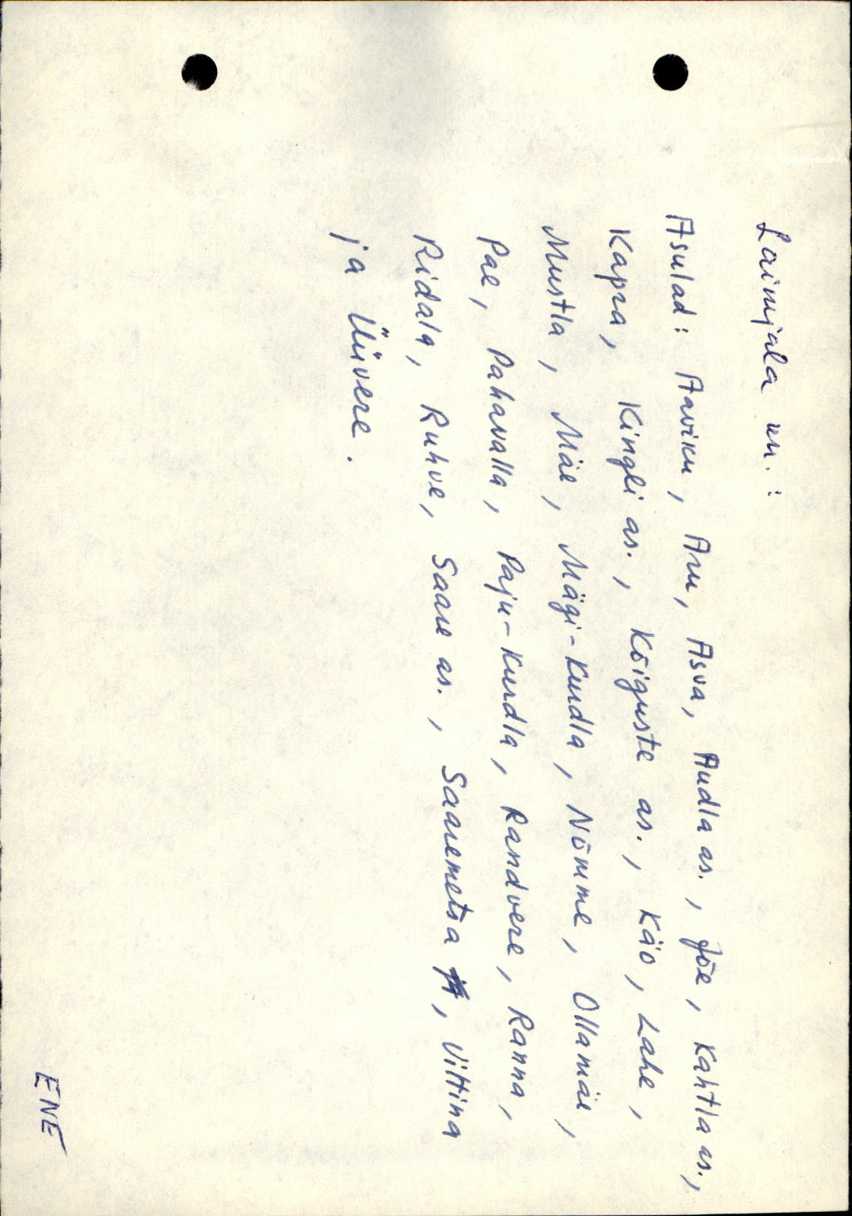 Laimjala vn.:
Asulad: Aaviku, Aru, Asva, Audla as., Jõe, Kahtla as.,
Kapra, Kingli as., Kõiguste as., Käo, Lahe,
Mustla, Mäe, Mägi-Kurdla, Nõmme, Ollamäe,
Pae, Pahavalla, Paju-Kurdla, Randvere, Ranna,
Ridala, Ruhve, Saare as., Saaremetsa, Viltina
ja Üüvere.
ENE